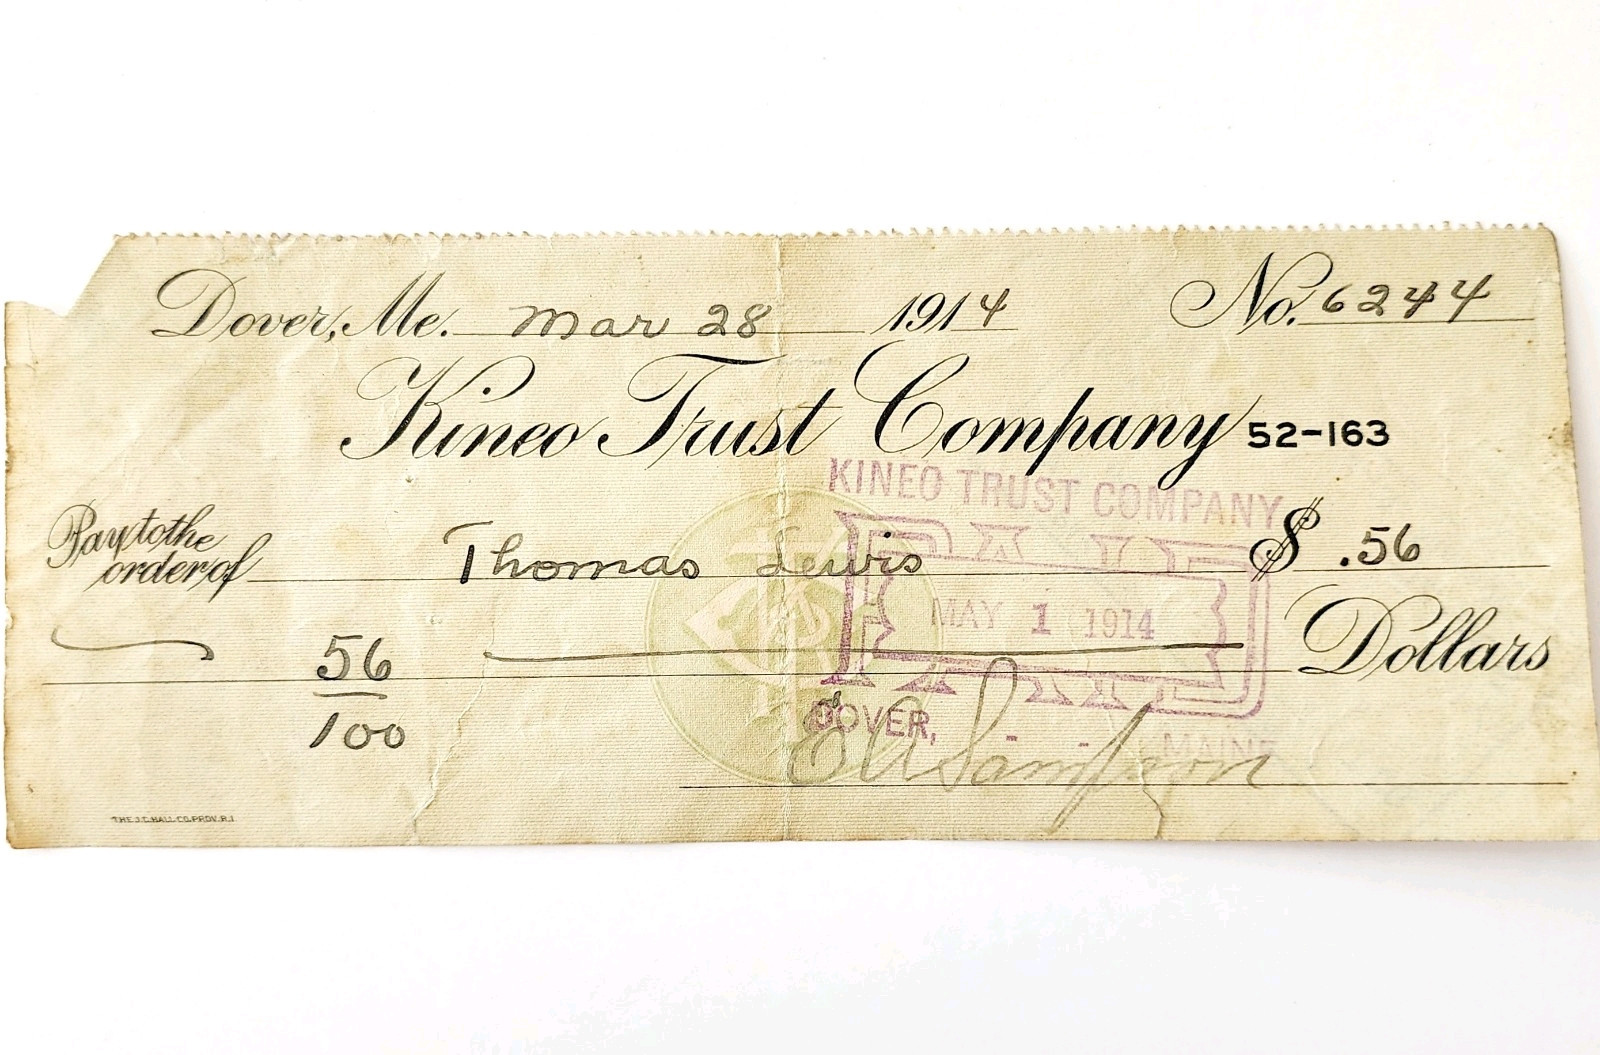 Dover, Me. Mar 28 1914 No. 6244
Kineo Trust Company 52-163
KINEO TRUST COMPANY
Pay to the order of Thomas Lewis $ .56
PAID
MAY 1 1914
56/100 Dollars
DOVER, - - MAINE
E A Sampson
THE J.C. HALL CO. PROV. R.I.